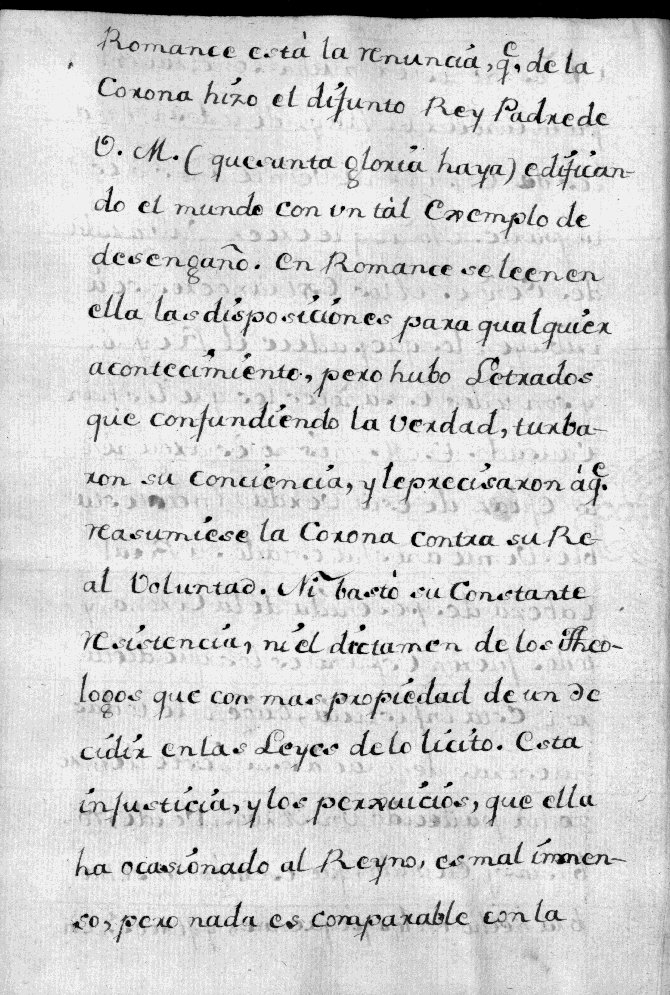 Romance està la renuncia, q.e de la
Corona hizo el difunto Rey Padre de
V. M. (que santa gloria haya) edifican-
do el mundo con vn tàl Exemplo de
desengaño. En Romance se leen en
ella las disposiciones para qualquier
acontecimiento, pero hubo Letrados
que confundiendo la Verdad, turba-
ron su conciencia, y le precisaron à q.e
reasumiese la Corona contra su Re-
al Voluntad. Ni bastò su Constante
resistencia, ni el dictamen de los Theo-
logos que con mas propiedad deven de
cidir en las Leyes de lo licito. Esta
injusticia, y los perxuicios, que ella
ha ocasionado al Reyno, es mal inmen-
so, pero nada es comparable con la